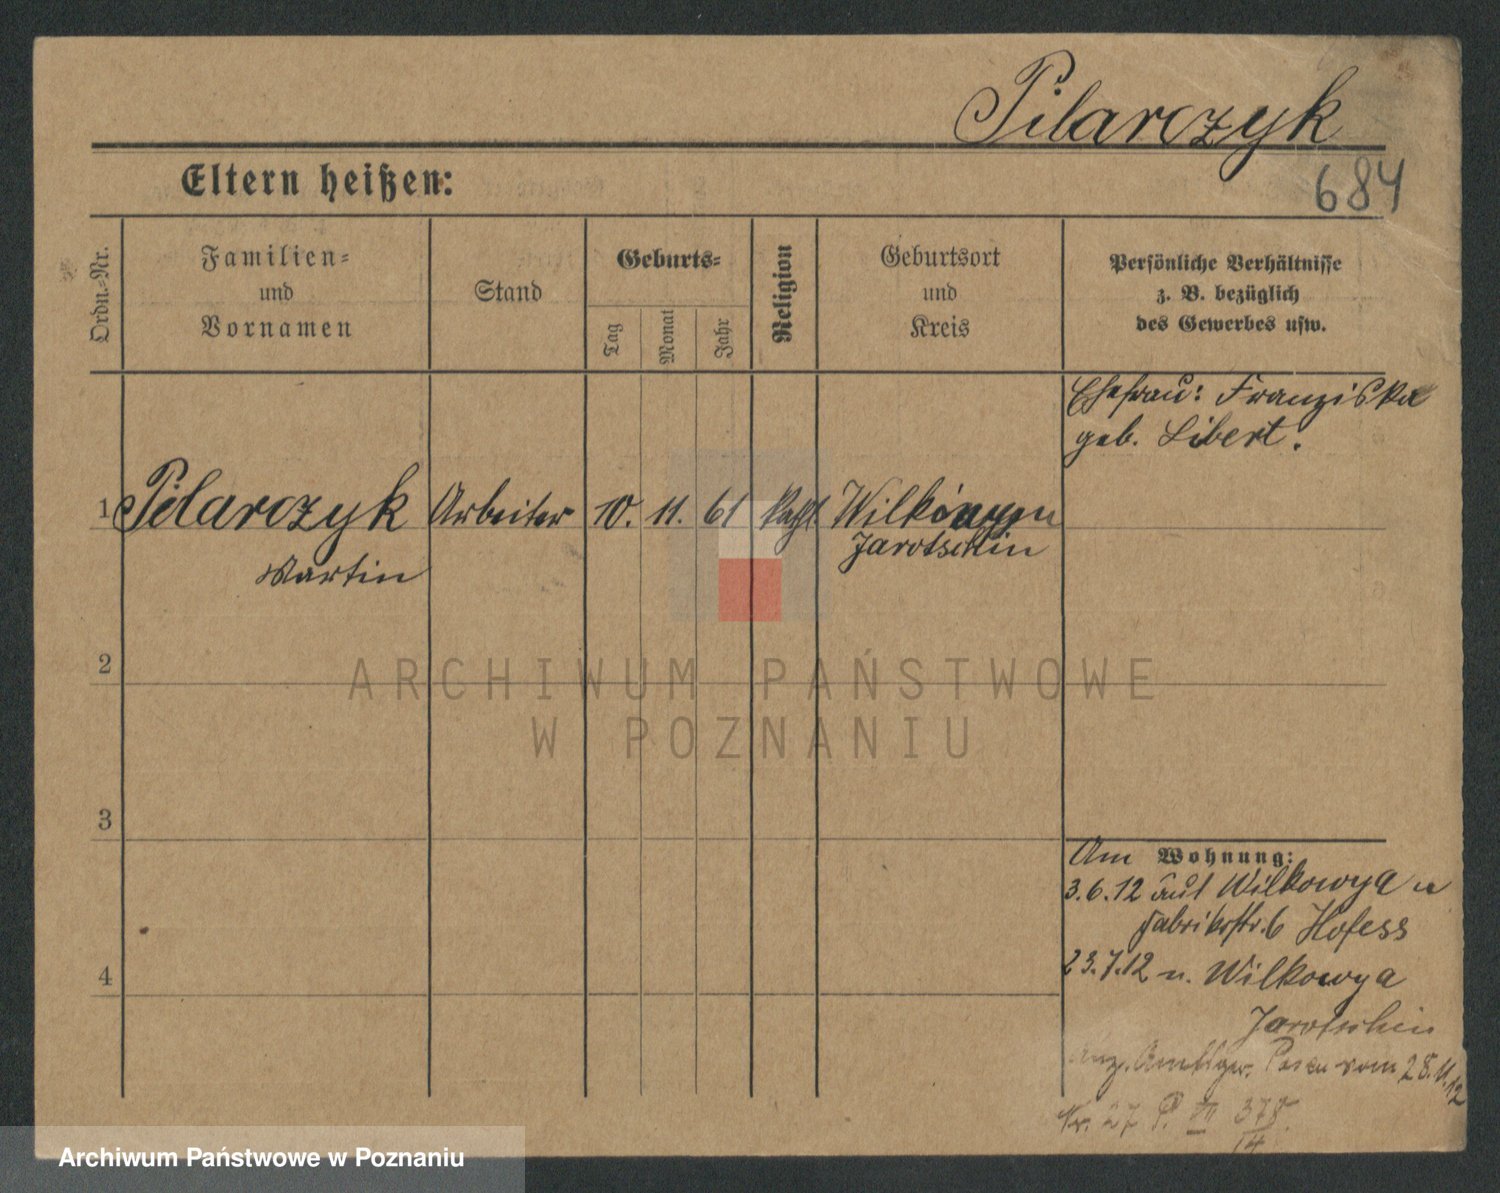 Pilarczyk
684
Eltern heißen:
Ordn.-Nr.
Familien-
und
Vornamen
Stand
Geburts-
Tag
Monat
Jahr
Religion
Geburtsort
und
Kreis
Persönliche Verhältnisse
z. B. bezüglich
des Gewerbes usw.
Ehefrau: Franziska
geb. Libert.
1 Pilarczyk Arbeiter 10. 11. 61 kath
Martin
Jarotschin
2
3
4
Am Wohnung:
3.6.12 aus Wilkowya n
Fabrikstr. 6 Hofess
23.7.12 n. Wilkowya
Jarotschin
Amtsger. Posen vom 28.11.12
Nr. 27 P. III 378
14
ARCHIWUM PAŃSTWOWE
W POZNANIU
Archiwum Państwowe w Poznaniu